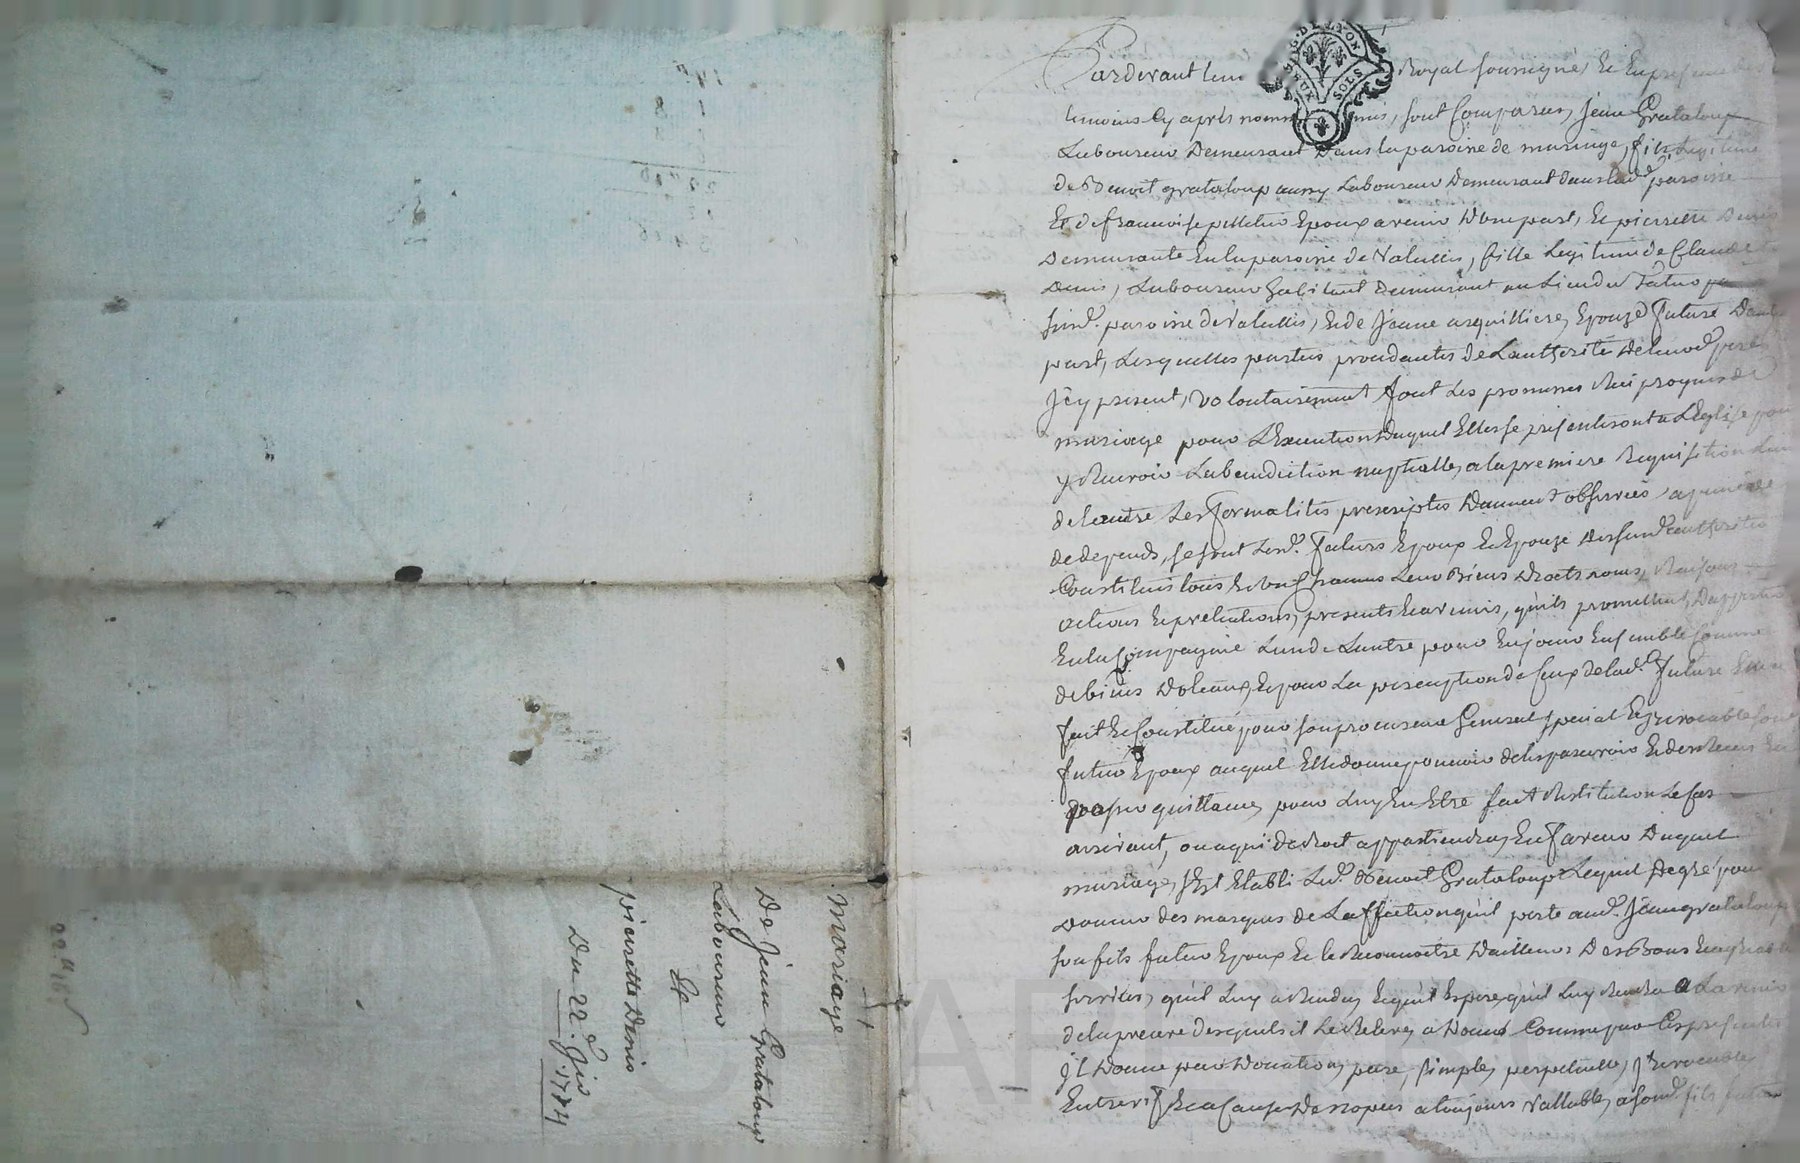 Mariage
De Jean Grataloup
Laboureur
Et
pierrette Denis
Du 22.e Jio 1774
GEN. DE LYON
SOLS
Pardevant le no Royal soussigné, Et En presence de
temoins Cy après nommés mis, sont Comparus, Jean Grataloup
Laboureur Demeurant Dans la paroisse de maringe, fils Legitime
de Benoit grataloup aussy Laboureur Demeurant dans lad.e paroisse
Et de francoise pelletier Epoux avenir D'une part, Et pierrette Denis
Demeurante En la paroisse de Valeilles, fille Legitime de Claude
Denis, Laboureur habitant Demeurant au Lieu du
susd.e paroisse de Valeilles, Et de Jeane arquilliere, Epouze Future D'autre
part, Lesquelles parties procedantes de L'authorité de leurd. peres
Icy present, volontairement font Les promesses Reciproques de
mariage pour L'Execution Duquel Elles se presenteront a L'Eglise pour
y Recevoir La benediction nuptialle, a la premiere Requisition L'un
de L'autre Les formalités prescriptes Duement observées, a peine de
depends, se sont Lesd. Futurs Epoux Et Epouze Desd. authorités
Constitués tous Et Uns Chacuns Leurs Biens Droits noms, Raisons
actions Et pretentions, presents Et avenirs, qu'ils promettent D'apporter
En la Compagnie L'un de L'autre pour En jouir Ensemble Comme
de biens Dotaux, Et pour La perception de ceux de lad.e Future Elle a
fait Et Constitué pour son procureur General special Et irrevocable son
futur Epoux auquel Elle donne pouvoir de les percevoir Et des Recus En
passer quittance, pour Luy En Etre fait Restitution Le cas
arrivant, ou a qui de droit appartiendra, En Faveur Duquel
mariage, s'Est Etabli Led. Benoit Grataloup Lequel De gré pour
Donner des marques de L'affection qu'il porte aud. Jean grataloup
son fils futur Epoux Et le Reconnoitre D'ailleurs Des Bons Et agreables
services, qu'il Luy a Rendus Et qu'il Espere, qu'il Luy Rendra a L'avenir
de la preuve desquels il Le Releve, a Donné Comme par Ces presentes
Il Donne par Donation, pure, simple, perpetuelle, Irrevocable
Entre vifs Et a Cause De nopces a toujours vallable, a sond. fils futur